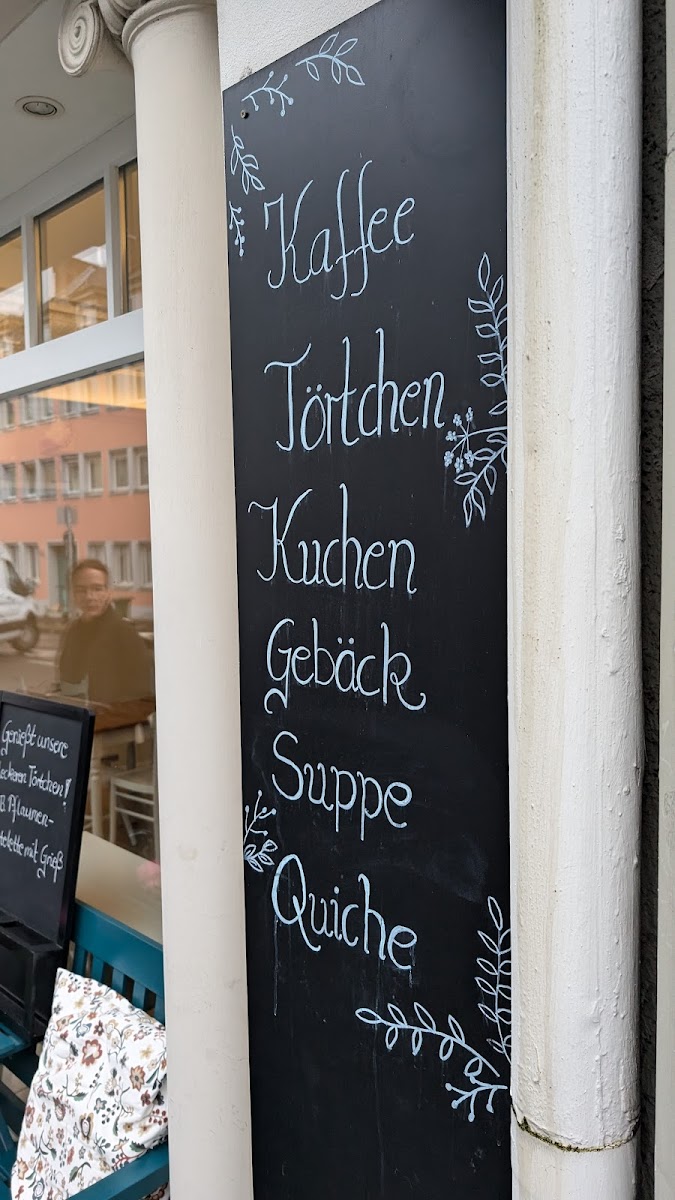 Kaffee
Törtchen
Kuchen
Gebäck
Suppe
Quiche
Genießt unsere
leckeren Törtchen!
Pflaumen-
mit Grieß